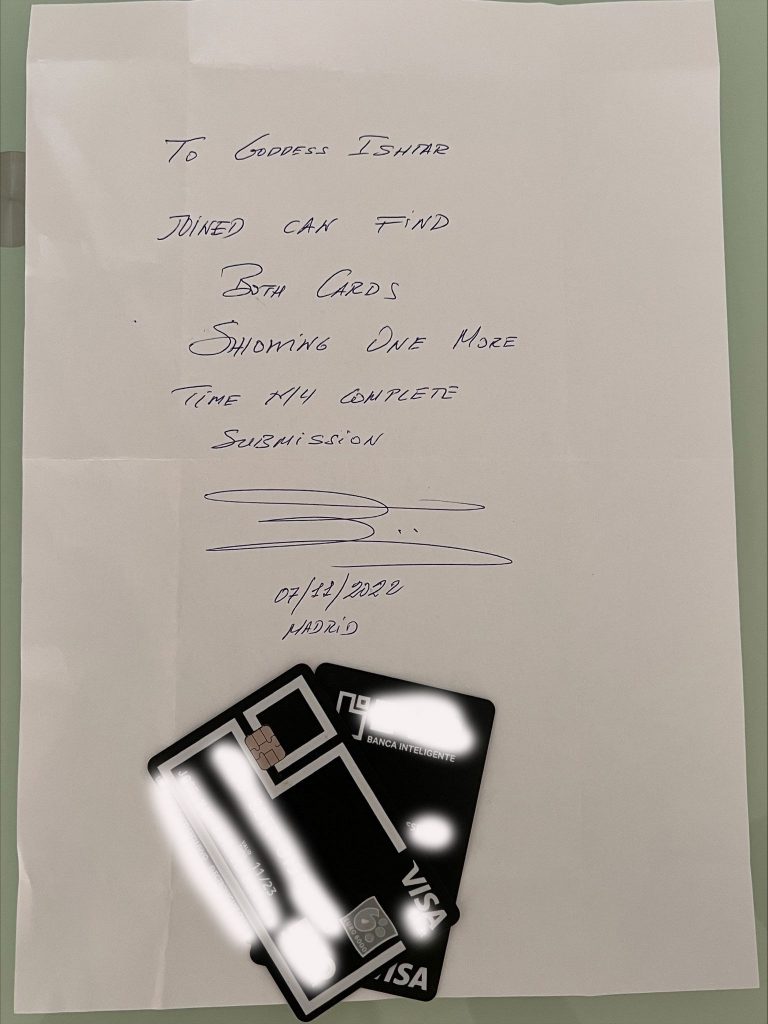 TO GODDESS ISHTAR
JOINED CAN FIND
BOTH CARDS
SHOWING ONE MORE
TIME MY COMPLETE
SUBMISSION
07/11/2022
MADRID
BANCA INTELIGENTE
11/23
VISA
VISA